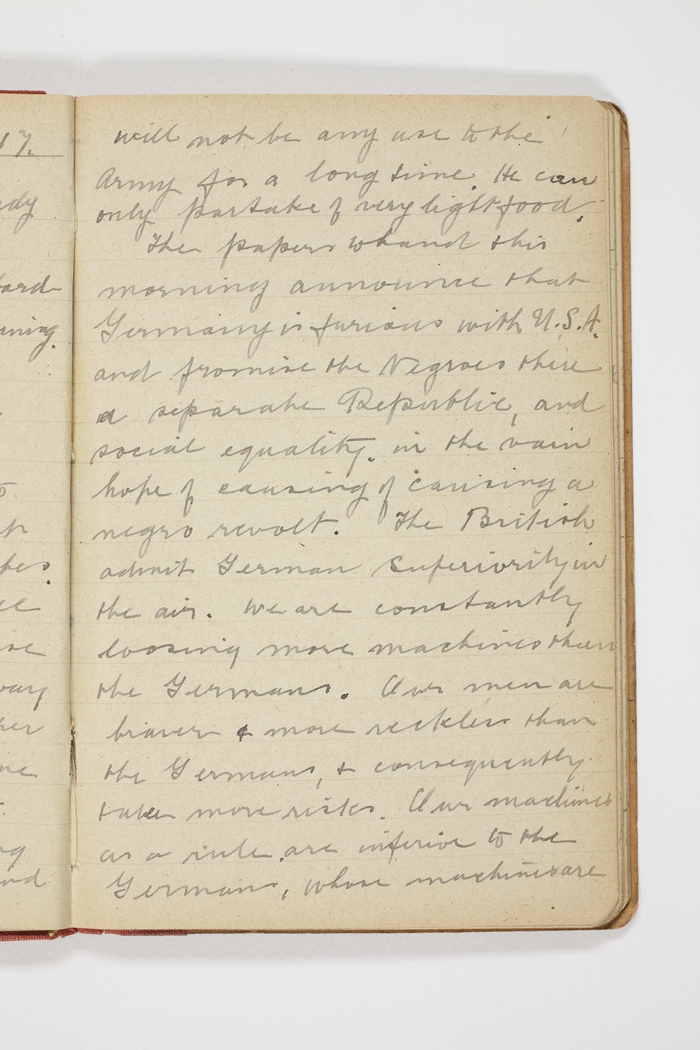 17.
will not be any use to the
Army for a long time. He can
only partake of very light food.
The papers to hand this
morning announce that
Germany is furious with U.S.A.
and promise the Negroes there
a separate Republic, and
social equality, in the vain
hope of causing of causing a
negro revolt. The British
admit German Superiority in
the air. We are constantly
loosing more machines than
the Germans. Our men are
braver & more reckless than
the Germans, & consequently
take more risks. Our machines
as a rule are inferior to the
Germans, whose machines are